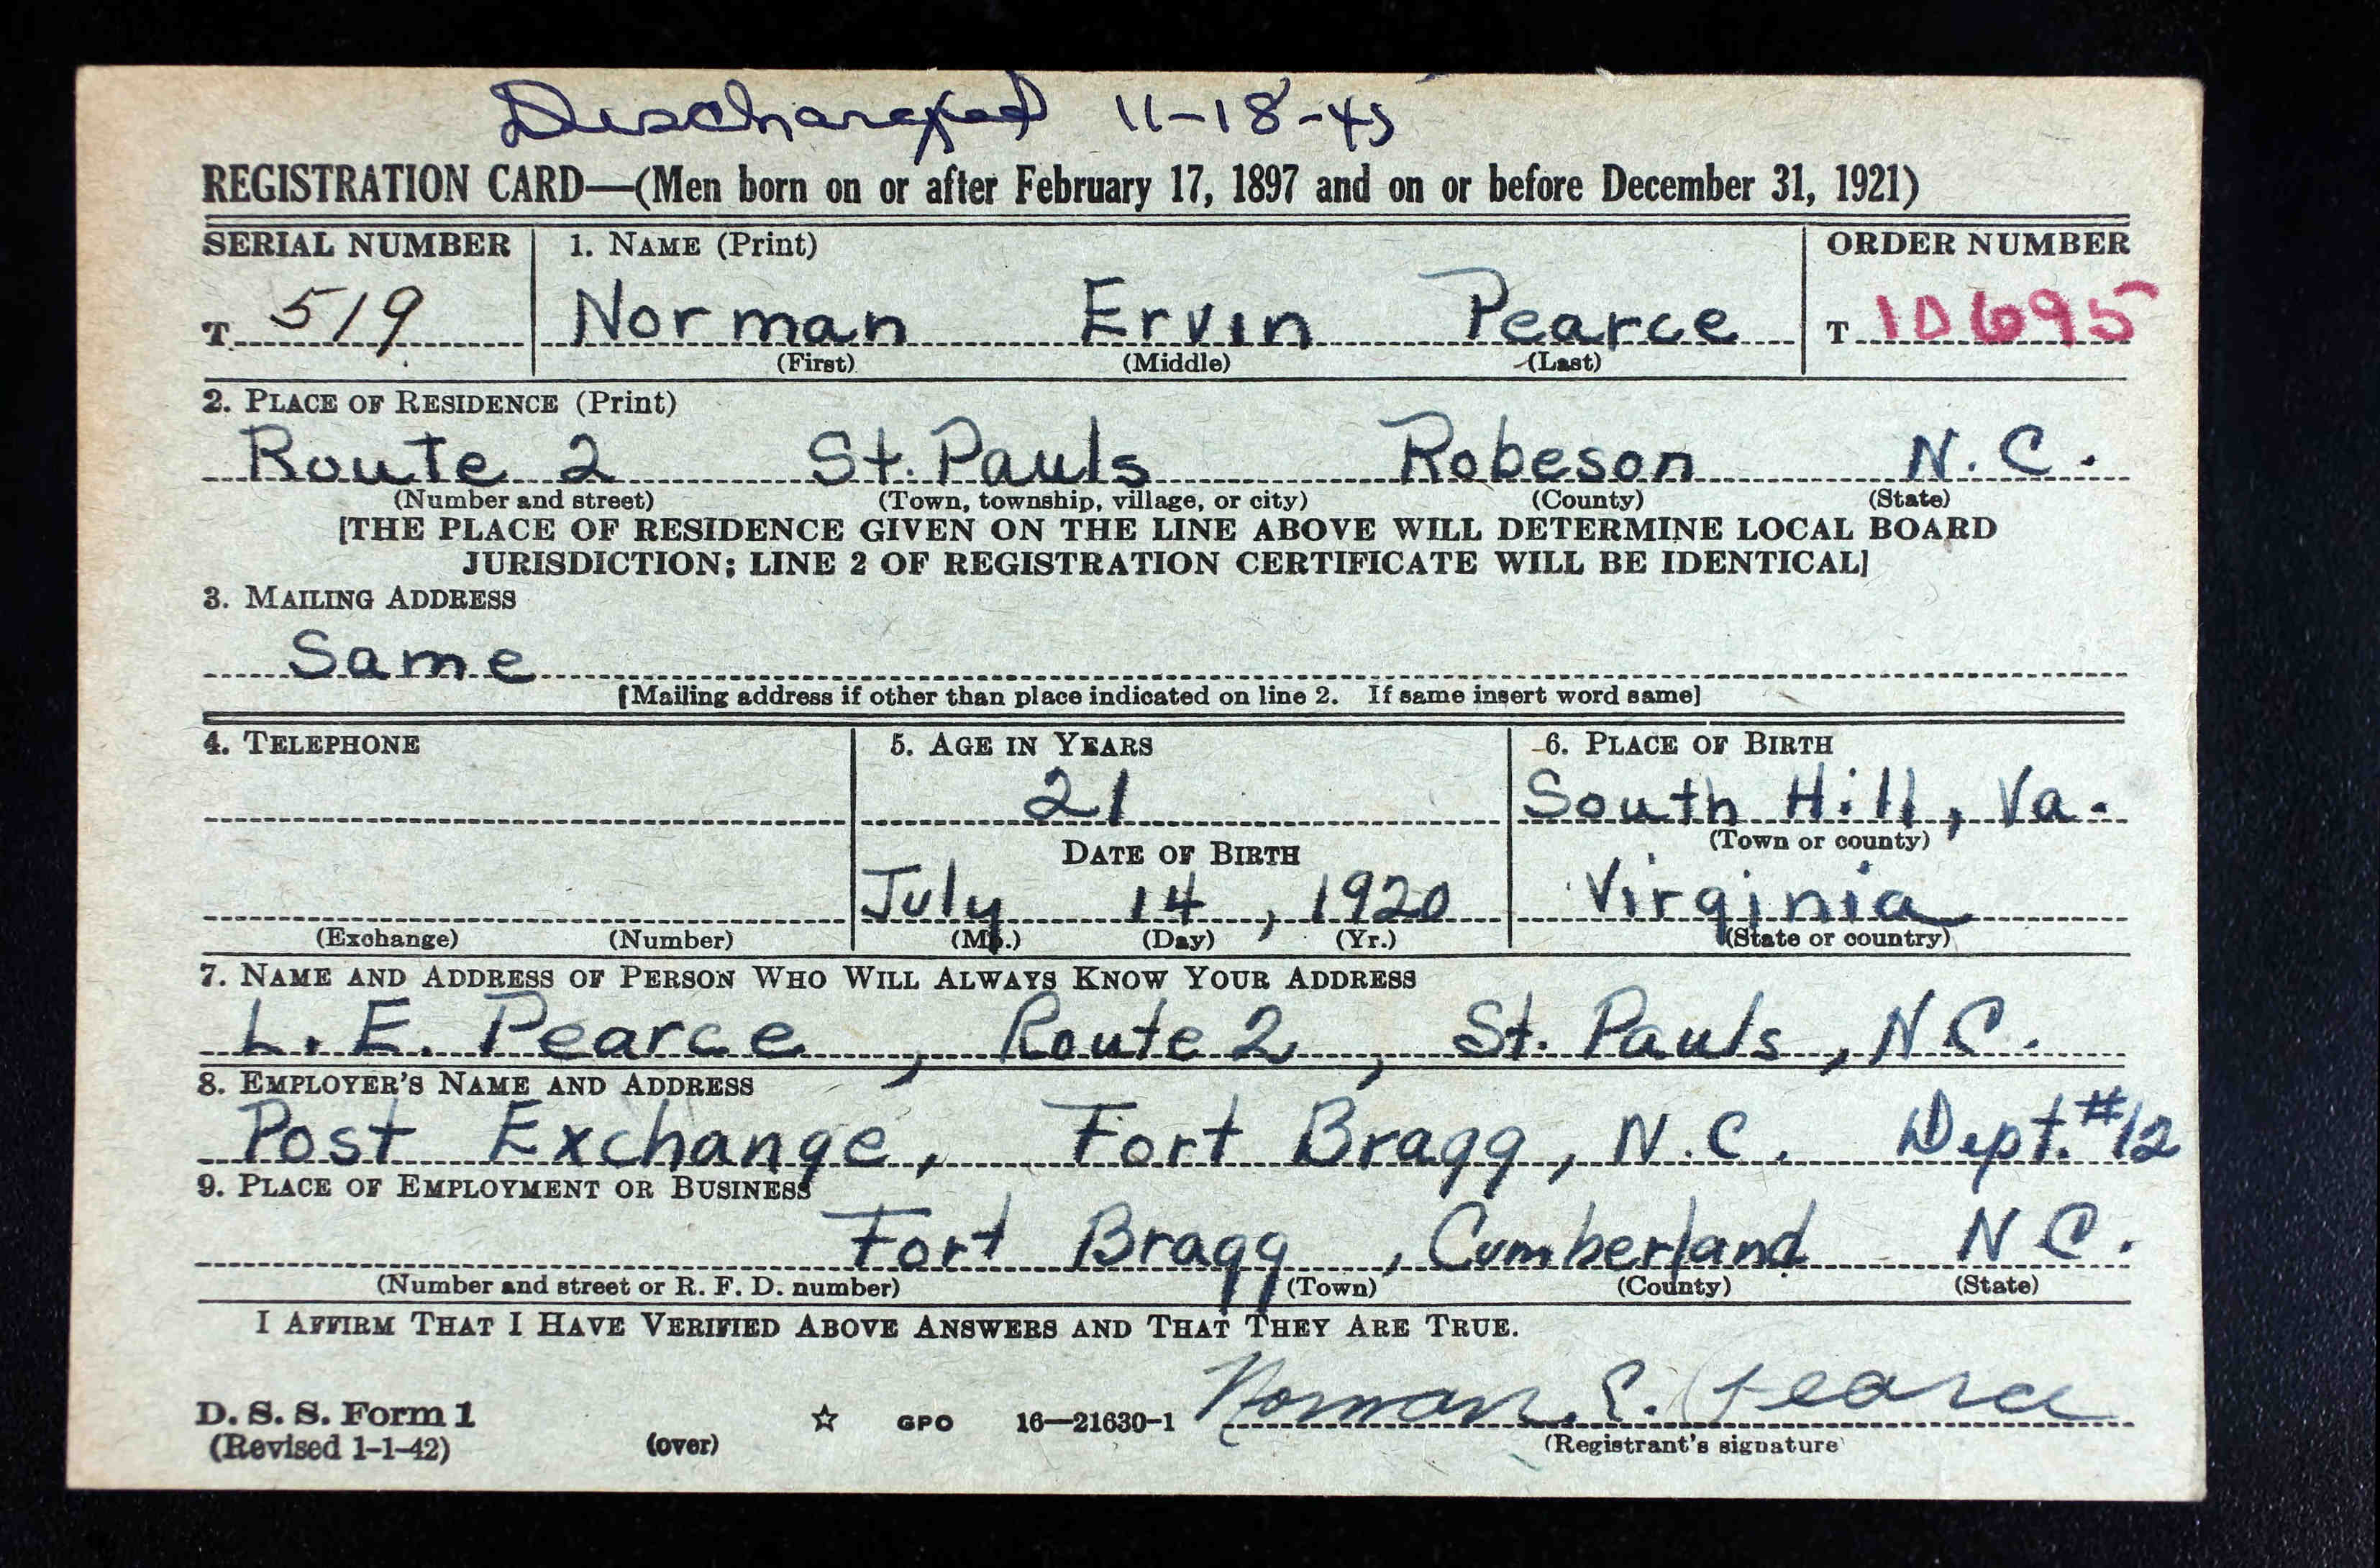 Discharged 11-18-45
REGISTRATION CARD—(Men born on or after February 17, 1897 and on or before December 31, 1921)
SERIAL NUMBER 1. NAME (Print) ORDER NUMBER
T 519 Norman Ervin Pearce T 10695
(First) (Middle) (Last)
2. PLACE OF RESIDENCE (Print)
Route 2 St. Pauls Robeson N.C.
(Number and street) (Town, township, village, or city) (County) (State)
[THE PLACE OF RESIDENCE GIVEN ON THE LINE ABOVE WILL DETERMINE LOCAL BOARD
JURISDICTION; LINE 2 OF REGISTRATION CERTIFICATE WILL BE IDENTICAL]
3. MAILING ADDRESS
Same
[Mailing address if other than place indicated on line 2. If same insert word same]
4. TELEPHONE 5. AGE IN YEARS 6. PLACE OF BIRTH
21 South Hill, Va.
DATE OF BIRTH (Town or county)
July 14, 1920 Virginia
(Exchange) (Number) (Mo.) (Day) (Yr.) (State or country)
7. NAME AND ADDRESS OF PERSON WHO WILL ALWAYS KNOW YOUR ADDRESS
L. E. Pearce, Route 2, St. Pauls, N.C.
8. EMPLOYER'S NAME AND ADDRESS
Post Exchange, Fort Bragg, N.C. Dept. #12
9. PLACE OF EMPLOYMENT OR BUSINESS
Fort Bragg, Cumberland N C.
(Number and street or R. F. D. number) (Town) (County) (State)
I AFFIRM THAT I HAVE VERIFIED ABOVE ANSWERS AND THAT THEY ARE TRUE.
Norman E. Pearce
D. S. S. Form 1 ☆ GPO 16—21630-1
(Revised 1-1-42) (over) (Registrant's signature)